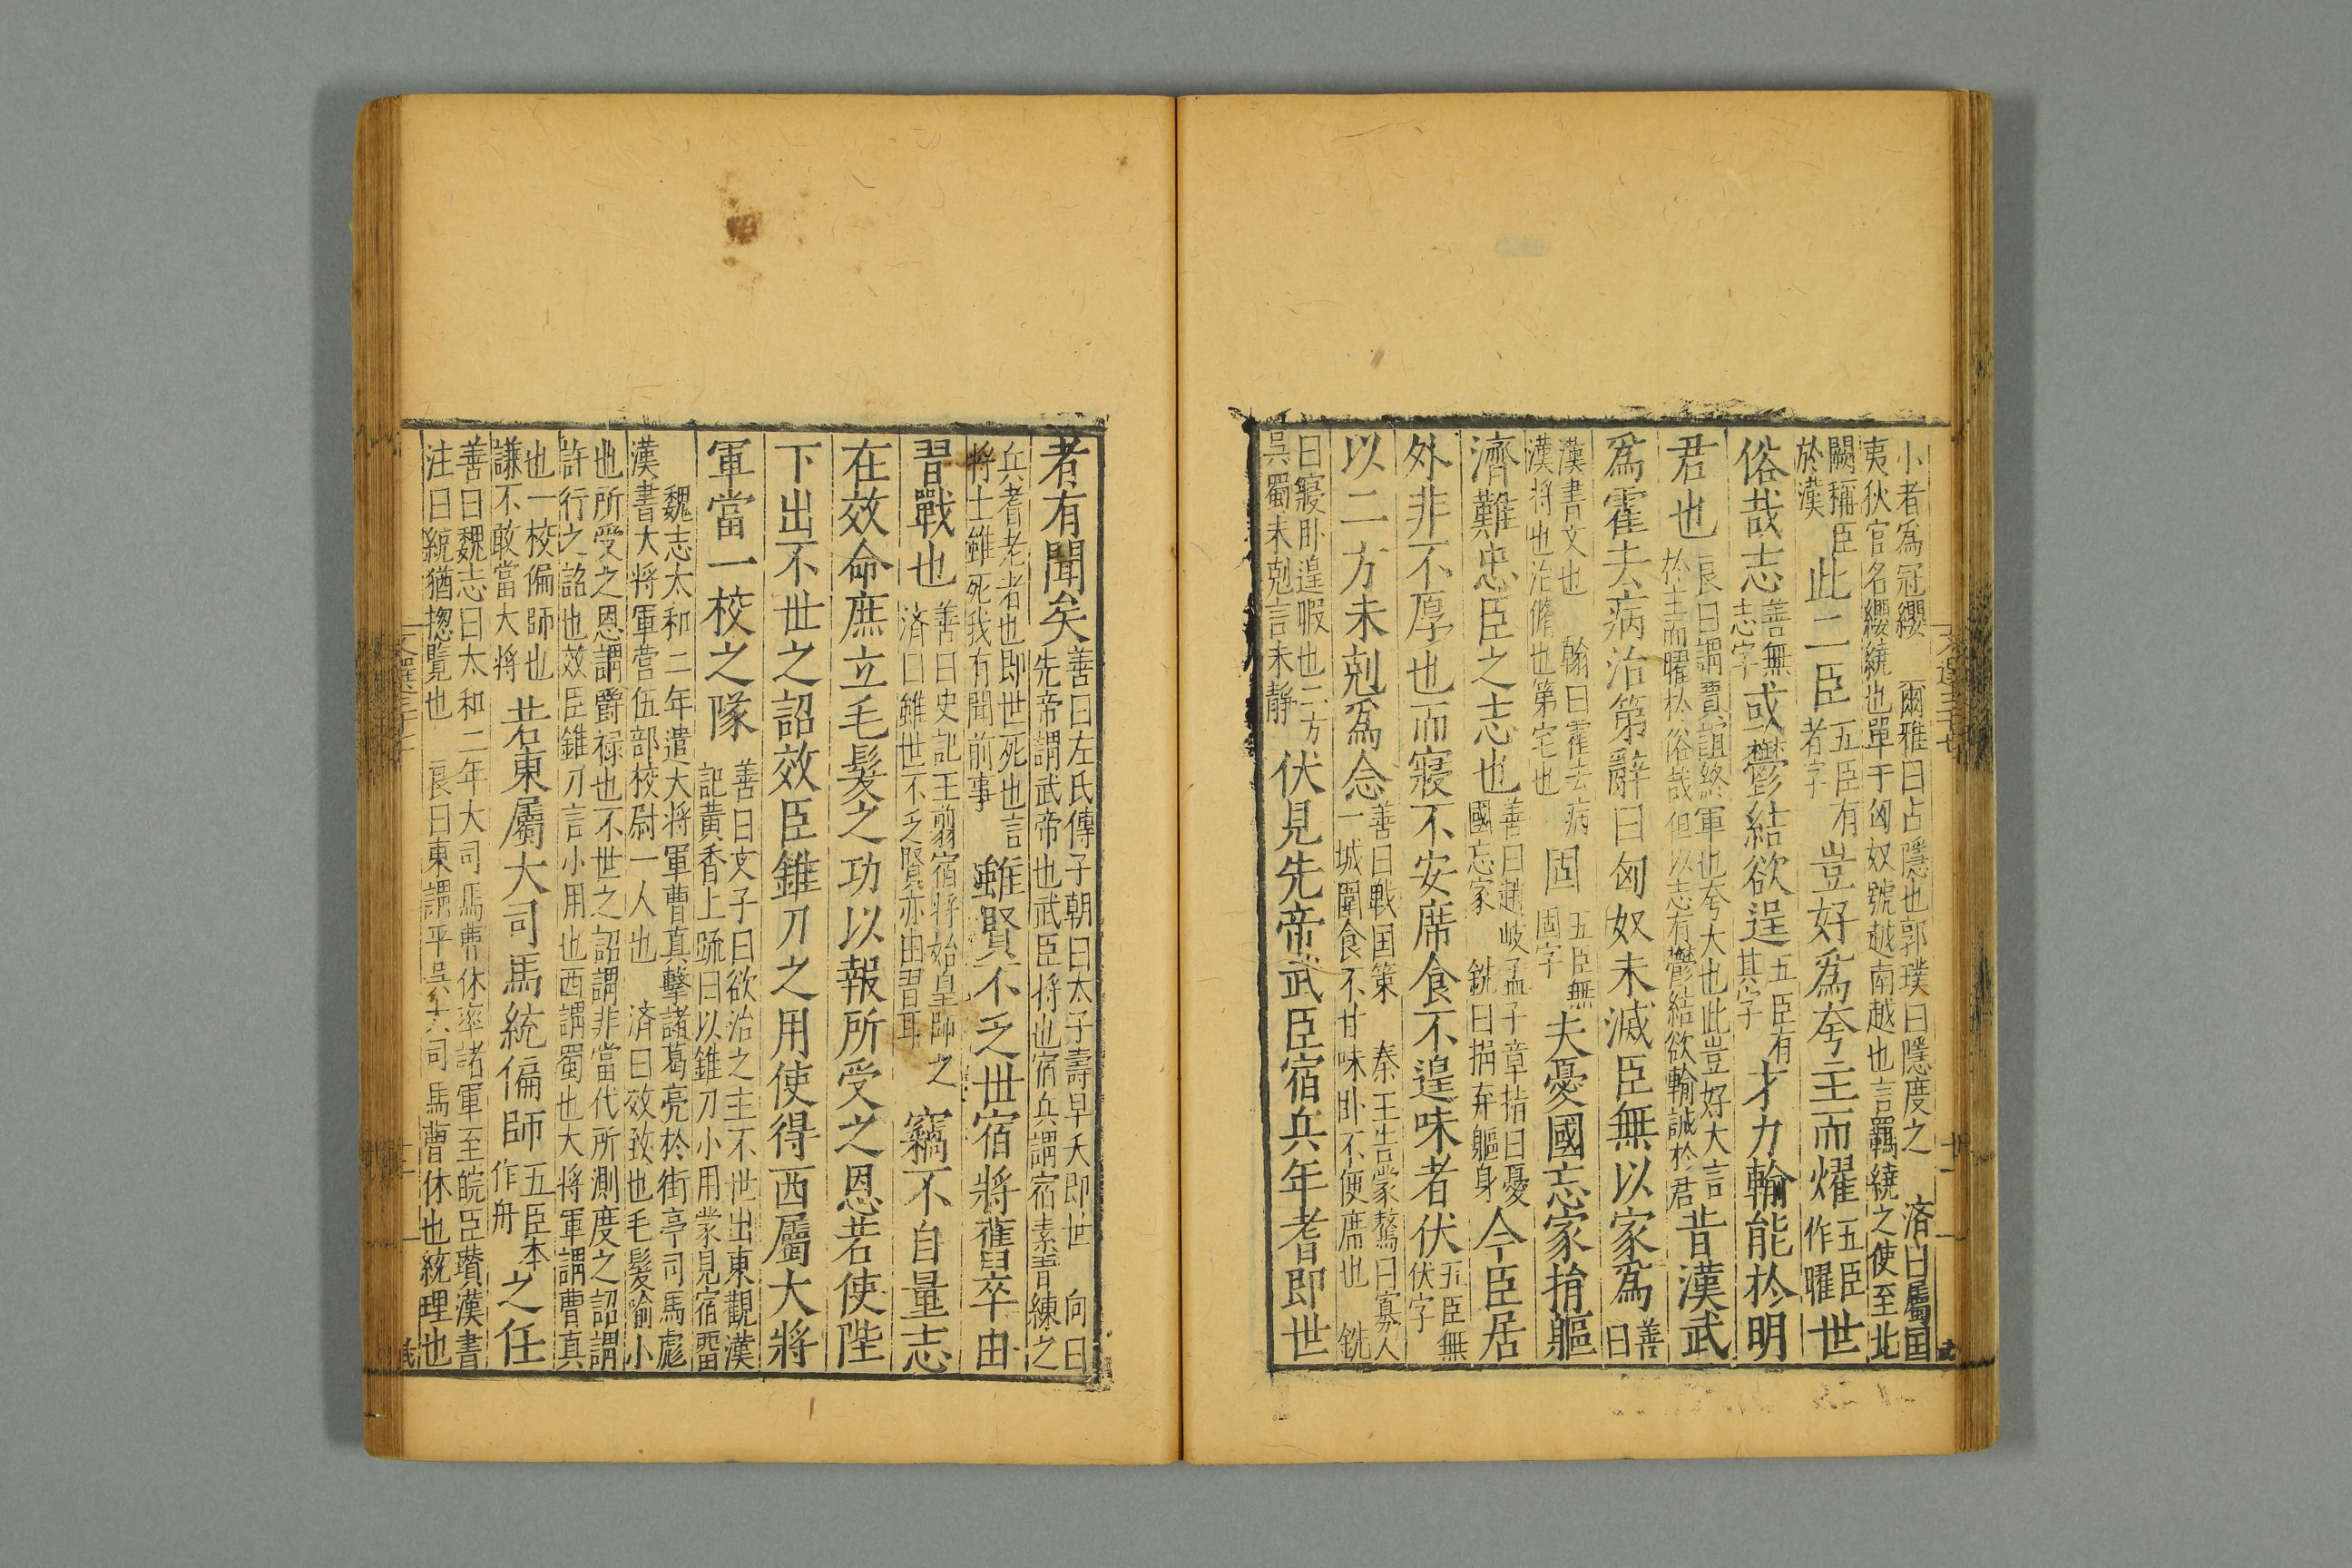 小者爲冠纓 爾雅曰占隱也郭璞曰隱度之 済曰屬国
夷狄官名纓繞也單于匈奴號越南越也言羈繞之使至北
闕稱臣於漢 此二臣五臣有者字豈好爲夸主而燿五臣作曜世
俗哉志善無志字或鬱結欲逞五臣有其字才力輸能於明
君也良曰謂賈誼終軍也夸大也此豈好大言於主而曜於俗哉但以志有鬱結欲輸誠於君昔漢武
爲霍去病治第辭曰匈奴未滅臣無以家爲善曰
漢書文也 翰曰霍去病漢將也治脩也第宅也固五臣無固字夫憂國忘家捐軀
濟難忠臣之志也善曰趙岐孟子章指曰憂國忘家 銑曰捐弃軀身今臣居
外非不厚也而寢不安席食不遑味者伏五臣無伏字
以二方未剋爲念善曰戰国策 秦王告蒙驁曰寡人一城圍食不甘味卧不便席也 銑
曰寢卧遑暇也二方吳蜀未剋言未静伏見先帝武臣宿兵年耆即世
者有聞矣善曰左氏傳子朝曰太子壽早夭即世 向曰先帝謂武帝也武臣將也宿兵謂宿素習練之
兵耆老者也即世死也言將士雖死我有聞前事雖賢不乏世宿將舊卒由
習戰也善曰史記王翦宿將始皇師之 済曰雖世不乏賢亦由習耳竊不自量志
在效命庶立毛髮之功以報所受之恩若使陛
下出不世之詔效臣錐刀之用使得西屬大將
軍當一校之隊善曰文子曰欲治之主不世出東觀漢記黃香上疏曰以錐刀小用蒙見宿畱
魏志太和二年遣大將軍曹真擊諸葛亮於街亭司馬彪
漢書大將軍營伍部校尉一人也 済曰效致也毛髮喻小
也所受之恩謂爵禄也不世之詔謂非當代所測度之詔謂
許行之詔也效臣錐刀言小用也西謂蜀也大將軍謂曹真
也一校偏師也謙不敢當大將若東屬大司馬統偏師五臣本作舟之任
善曰魏志曰太和二年大司馬曹休率諸軍至皖臣瓚漢書
注曰統猶揔覽也 良曰東謂平吳大司馬曹休也統理也
文選三十七